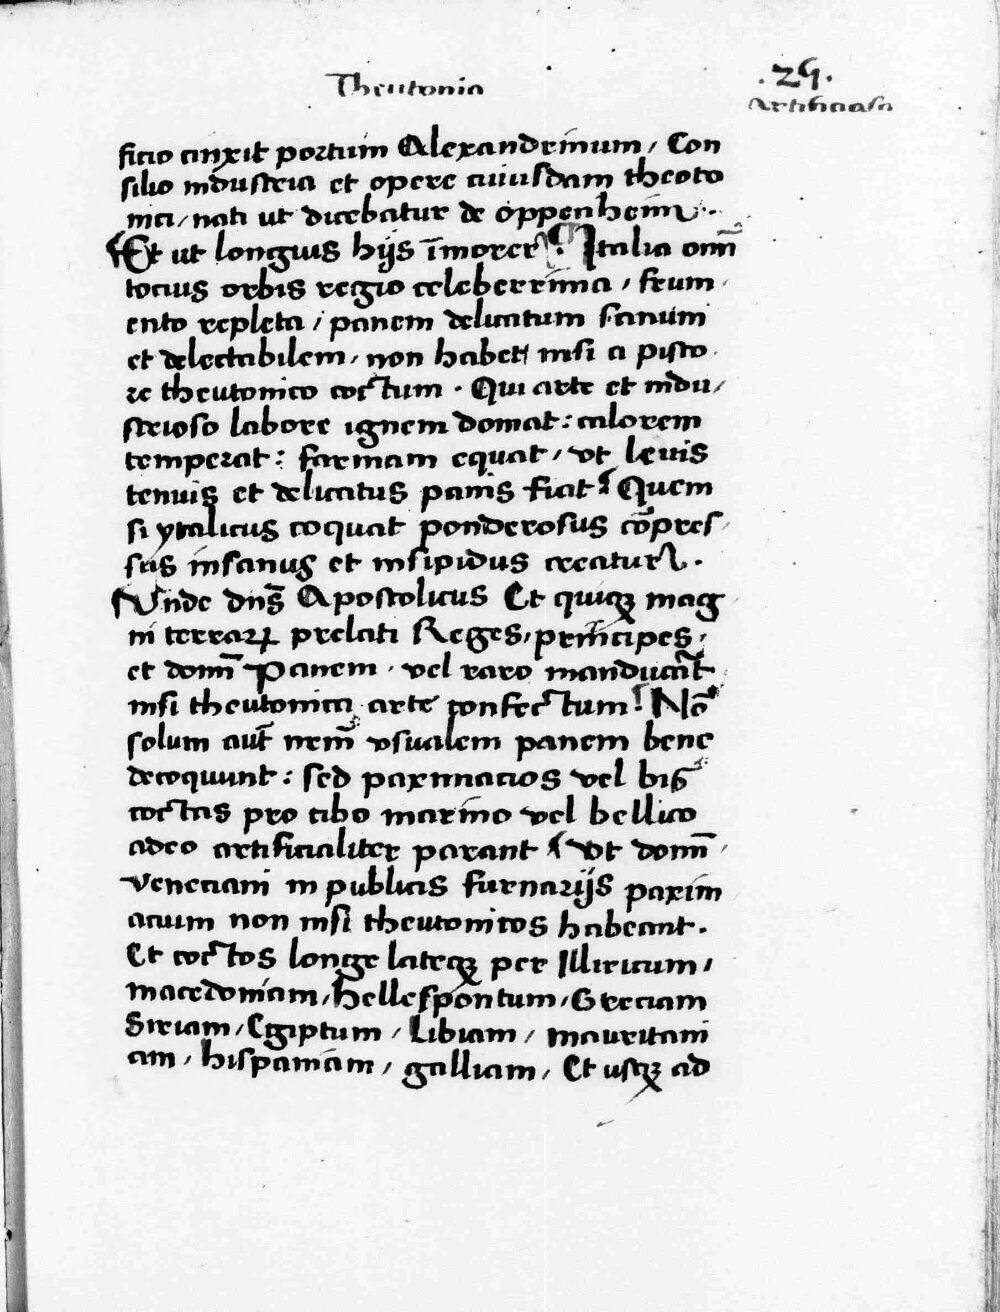 Theutonia
.29.
Artificiosa
ficio cinxit portum Alexandrinum / Con
silio industria et opere cuiusdam theoto
nici / nati ut dicebatur de oppenheim .
Et ut longius hijs īmorer Italia om̄
tocius orbis regio celeberrima / frum
ento repleta / panem delicatum sanum
et delectabilem / non habet nisi a pisto
re theutonico coctum . Qui arte et indu /
strioso labore ignem domat : calorem
temperat : farinam equat / vt levis
tenuis et delicatus panis fiat Quem
si ytalicus coquat ponderosus cōpres
sus insanus et insipidus creatur .
Vnde dn̄s Apostolicus Et quiqꝫ mag
ni terraꝝ prelati Reges / principes /
et domī Panem vel raro manducāt
nisi theutonica arte confectum Nō
solum aut̄ nem̄ vsualem panem bene
decoquunt : sed paximacios vel bis
coctas pro cibo marino vel bellico
adeo artificialiter parant Vt domī
veneciani in publicis furnarijs paxim
acium non nisi theutonicos habeant .
Et coctos longe lateqꝫ per Illiricum /
macedoniam / hellespontum / Greciam
Siriam / Egiptum / Libiam / mauritani
am / hispaniam / galliam / Et usqꝫ ad